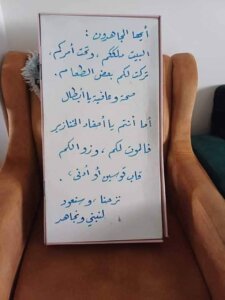 أيها المجاهدون :
البيت ملككم ، وتحت أمركم.
تركت لكم بعض الطعام .
صحة وعافية يا أبطال
أما أنتم يا أحفاد الخنازير
فالموت لكم ، وزوالكم
قاب قوسين أو أدنى .
نزحنا ، وسنعود
لنبني ونجاهد